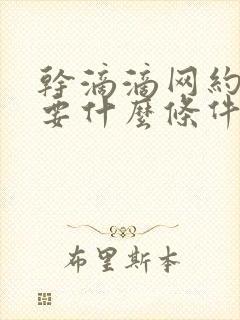 幹滴滴网約
要什麽條件
布里斯本